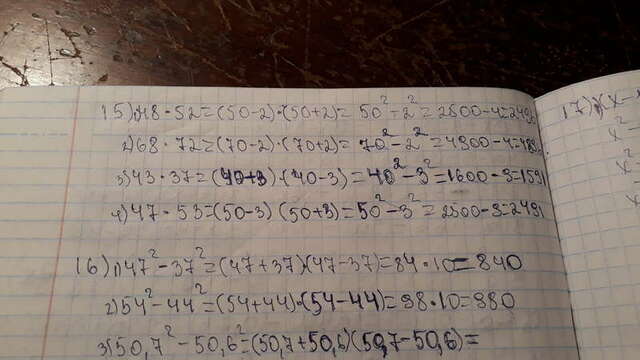 15)1)48·52=(50-2)·(50+2)=50²-2²=2500-4=249
2)68·72=(70-2)·(70+2)=70²-2²=4900-4=489
3)43·37=(40+3)·(40-3)=40²-3²=1600-9=159
4)47·53=(50-3)(50+3)=50²-3²=2500-9=249
16)1)47²-37²=(47+37)(47-37)=84·10=840
2)54²-44²=(54+44)·(54-44)=98·10=980
3)50,7²-50,6²=(50,7+50,6)(50,7-50,6)=
17)